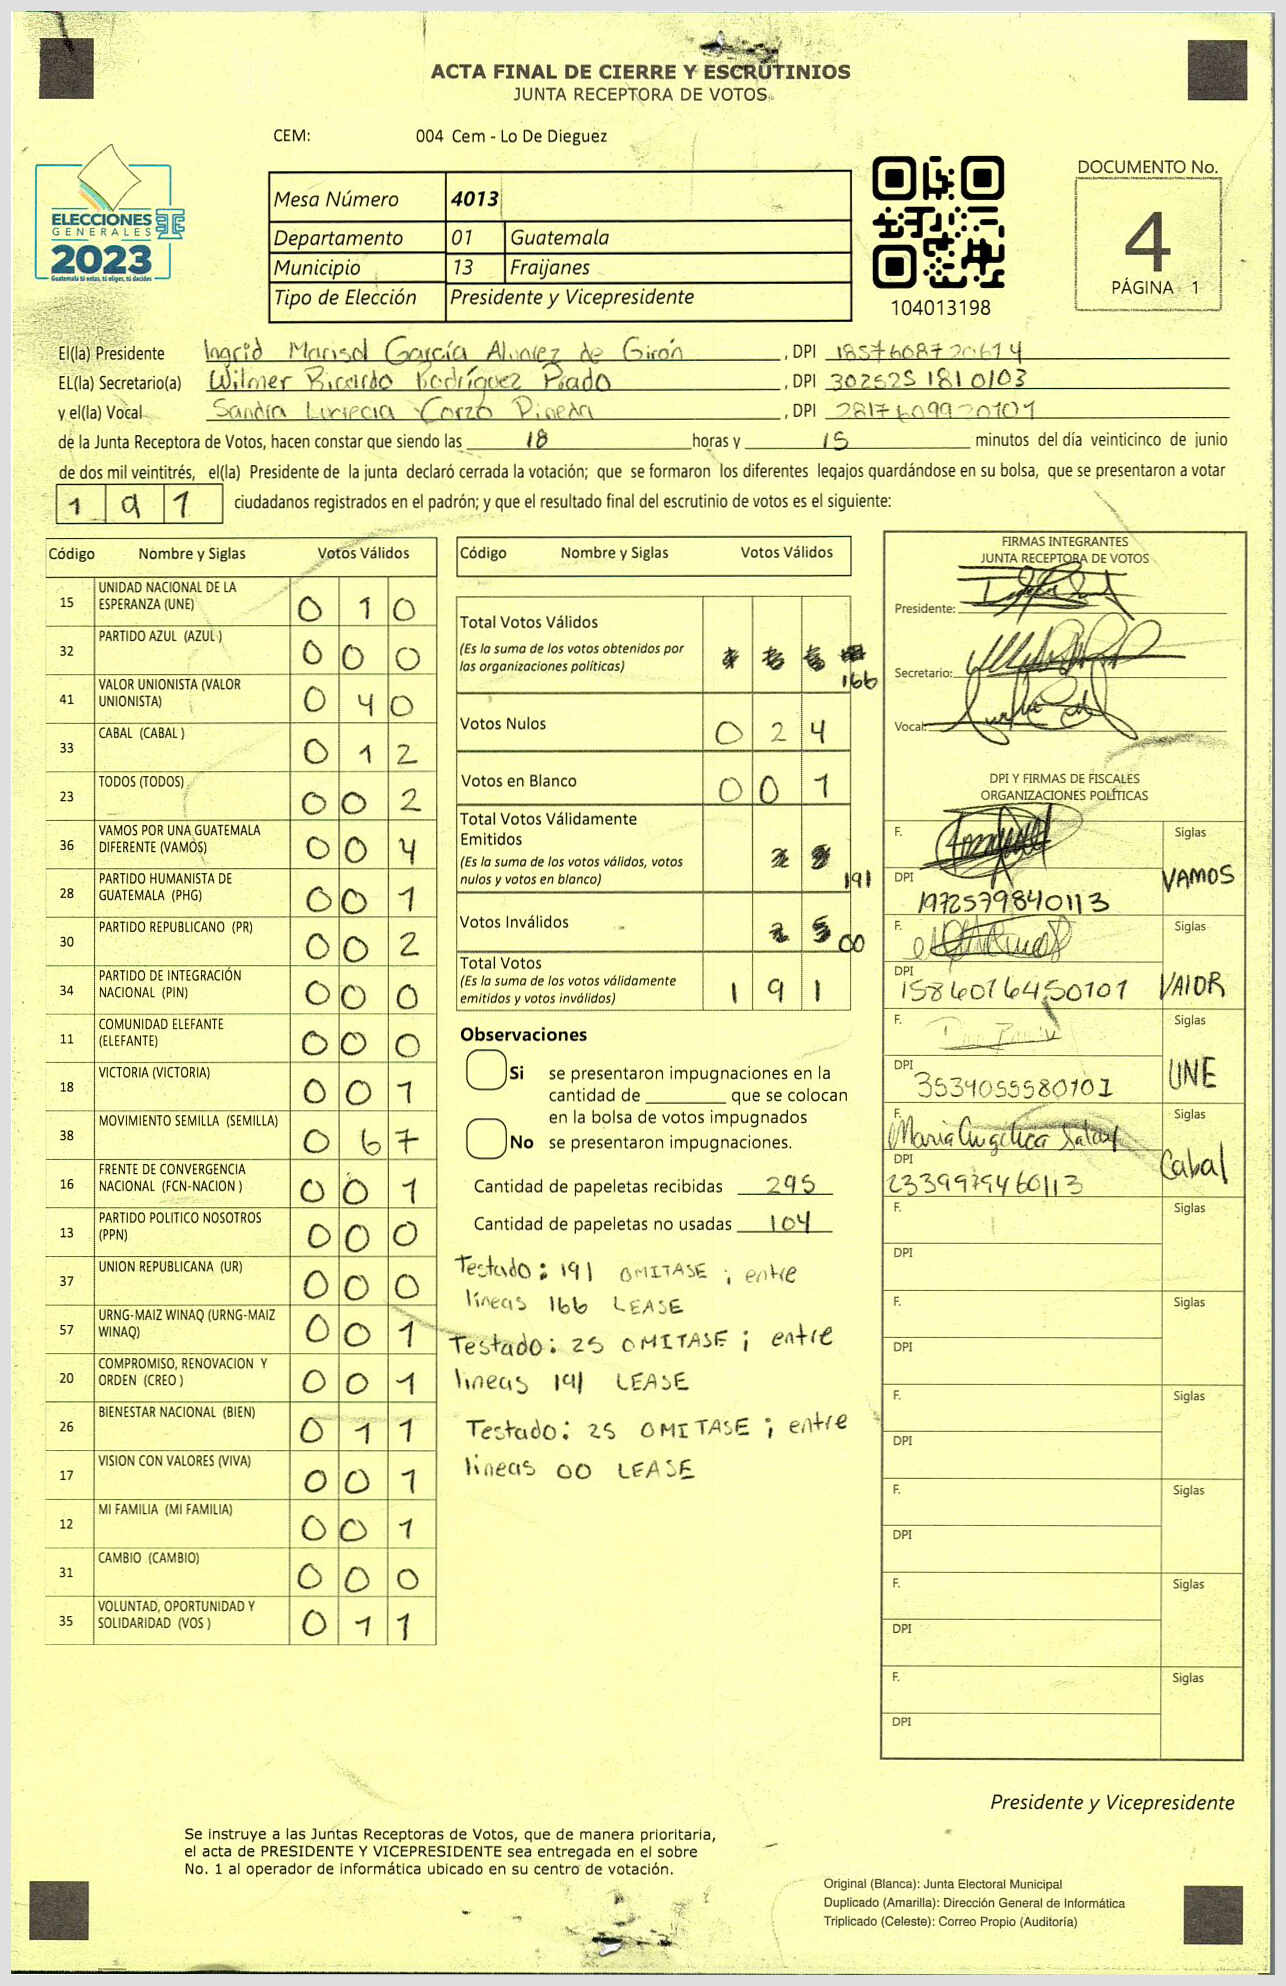 ACTA FINAL DE CIERRE Y ESCRUTINIOS
JUNTA RECEPTORA DE VOTOS
CEM: 004 Cem - Lo De Dieguez
ELECCIONES
GENERALES
2023
Guatemala tú entas, tú eliges, tú decides
Mesa Número 4013
Departamento 01 Guatemala
Municipio 13 Fraijanes
Tipo de Elección Presidente y Vicepresidente
104013198
DOCUMENTO No.
4
PÁGINA 1
El(la) Presidente Ingrid Marisol García Alvarez de Girón , DPI
EL(la) Secretario(a) Wilmer Ricardo Rodríguez Prado , DPI 302525 181 0103
y el(la) Vocal Sandra Lucrecia Corzo Pineda , DPI 2817609920101
de la Junta Receptora de Votos, hacen constar que siendo las 18 horas y 15 minutos del día veinticinco de junio
de dos mil veintitrés, el(la) Presidente de la junta declaró cerrada la votación; que se formaron los diferentes legajos guardándose en su bolsa, que se presentaron a votar
1 9 1 ciudadanos registrados en el padrón; y que el resultado final del escrutinio de votos es el siguiente:
Código Nombre y Siglas Votos Válidos
15 UNIDAD NACIONAL DE LA
ESPERANZA (UNE) 0 1 0
32 PARTIDO AZUL (AZUL ) 0 0 0
41 VALOR UNIONISTA (VALOR
UNIONISTA) 0 4 0
33 CABAL (CABAL ) 0 1 2
23 TODOS (TODOS) 0 0 2
36 VAMOS POR UNA GUATEMALA
DIFERENTE (VAMOS) 0 0 4
28 PARTIDO HUMANISTA DE
GUATEMALA (PHG) 0 0 1
30 PARTIDO REPUBLICANO (PR) 0 0 2
34 PARTIDO DE INTEGRACIÓN
NACIONAL (PIN) 0 0 0
11 COMUNIDAD ELEFANTE
(ELEFANTE) 0 0 0
18 VICTORIA (VICTORIA) 0 0 1
38 MOVIMIENTO SEMILLA (SEMILLA) 0 6 7
16 FRENTE DE CONVERGENCIA
NACIONAL (FCN-NACION ) 0 0 1
13 PARTIDO POLITICO NOSOTROS
(PPN) 0 0 0
37 UNION REPUBLICANA (UR) 0 0 0
57 URNG-MAIZ WINAQ (URNG-MAIZ
WINAQ) 0 0 1
20 COMPROMISO, RENOVACION Y
ORDEN (CREO ) 0 0 1
26 BIENESTAR NACIONAL (BIEN) 0 1 1
17 VISION CON VALORES (VIVA) 0 0 1
12 MI FAMILIA (MI FAMILIA) 0 0 1
31 CAMBIO (CAMBIO) 0 0 0
35 VOLUNTAD, OPORTUNIDAD Y
SOLIDARIDAD (VOS ) 0 1 1
Código Nombre y Siglas Votos Válidos
Total Votos Válidos
(Es la suma de los votos obtenidos por
las organizaciones políticas)
166
Votos Nulos 0 2 4
Votos en Blanco 0 0 1
Total Votos Válidamente
Emitidos
(Es la suma de los votos válidos, votos
nulos y votos en blanco)
191
Votos Inválidos 00
Total Votos
(Es la suma de los votos válidamente
emitidos y votos inválidos) 1 9 1
Observaciones
Si se presentaron impugnaciones en la
cantidad de ________ que se colocan
en la bolsa de votos impugnados
No se presentaron impugnaciones.
Cantidad de papeletas recibidas 295
Cantidad de papeletas no usadas 104
Testado: 191 OMITASE ; entre
lineas 166 LEASE
Testado: 25 OMITASE ; entre
lineas 191 LEASE
Testado: 25 OMITASE ; entre
lineas 00 LEASE
FIRMAS INTEGRANTES
JUNTA RECEPTORA DE VOTOS
Presidente:
Secretario:
Vocal:
DPI Y FIRMAS DE FISCALES
ORGANIZACIONES POLÍTICAS
F. Siglas
DPI VAMOS
1972579840113
F. Siglas
DPI VAlOR
1586016450101
F. Siglas
DPI UNE
3534055580101
F. Siglas
Maria Angelica
DPI Cabal
2339979460113
F. Siglas
DPI
F. Siglas
DPI
F. Siglas
DPI
F. Siglas
DPI
F. Siglas
DPI
F. Siglas
DPI
Presidente y Vicepresidente
Se instruye a las Juntas Receptoras de Votos, que de manera prioritaria,
el acta de PRESIDENTE Y VICEPRESIDENTE sea entregada en el sobre
No. 1 al operador de informática ubicado en su centro de votación.
Original (Blanca): Junta Electoral Municipal
Duplicado (Amarilla): Dirección General de Informática
Triplicado (Celeste): Correo Propio (Auditoría)